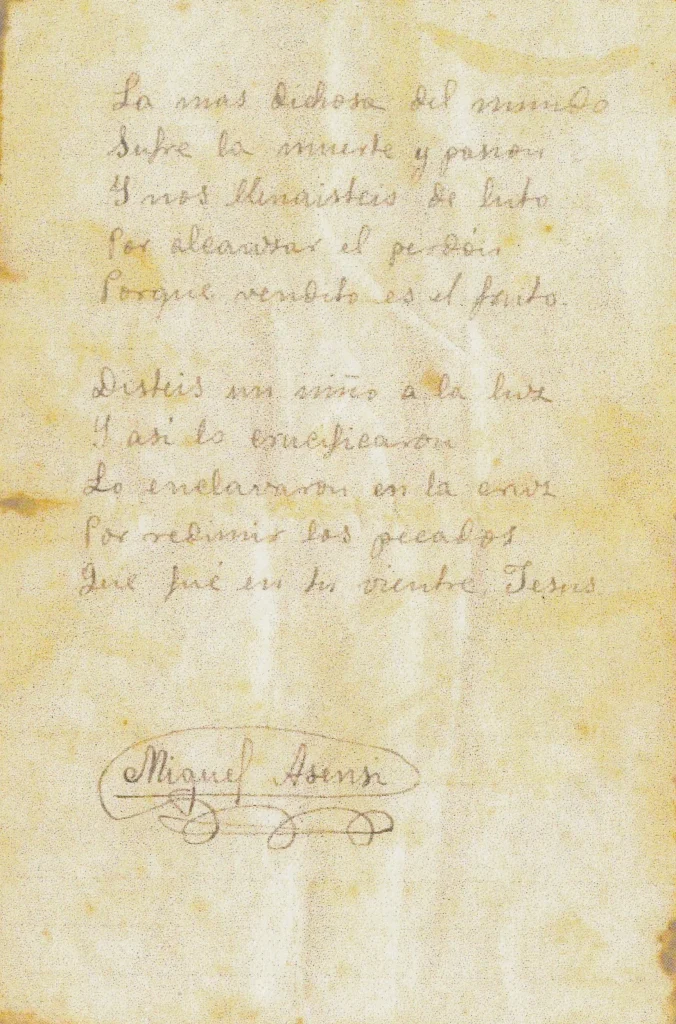 La mas dichosa del mundo
Sufre la muerte y pasion
Y nos llenaisteis de luto
Por alcansar el perdón
Porque vendito es el fruto.
Disteis un niño a la luz
Y asi lo crucificaron
Lo enclavaron en la cruz
Por redimir los pecados
Que fué en tu vientre Jesus
Miguel Asensi